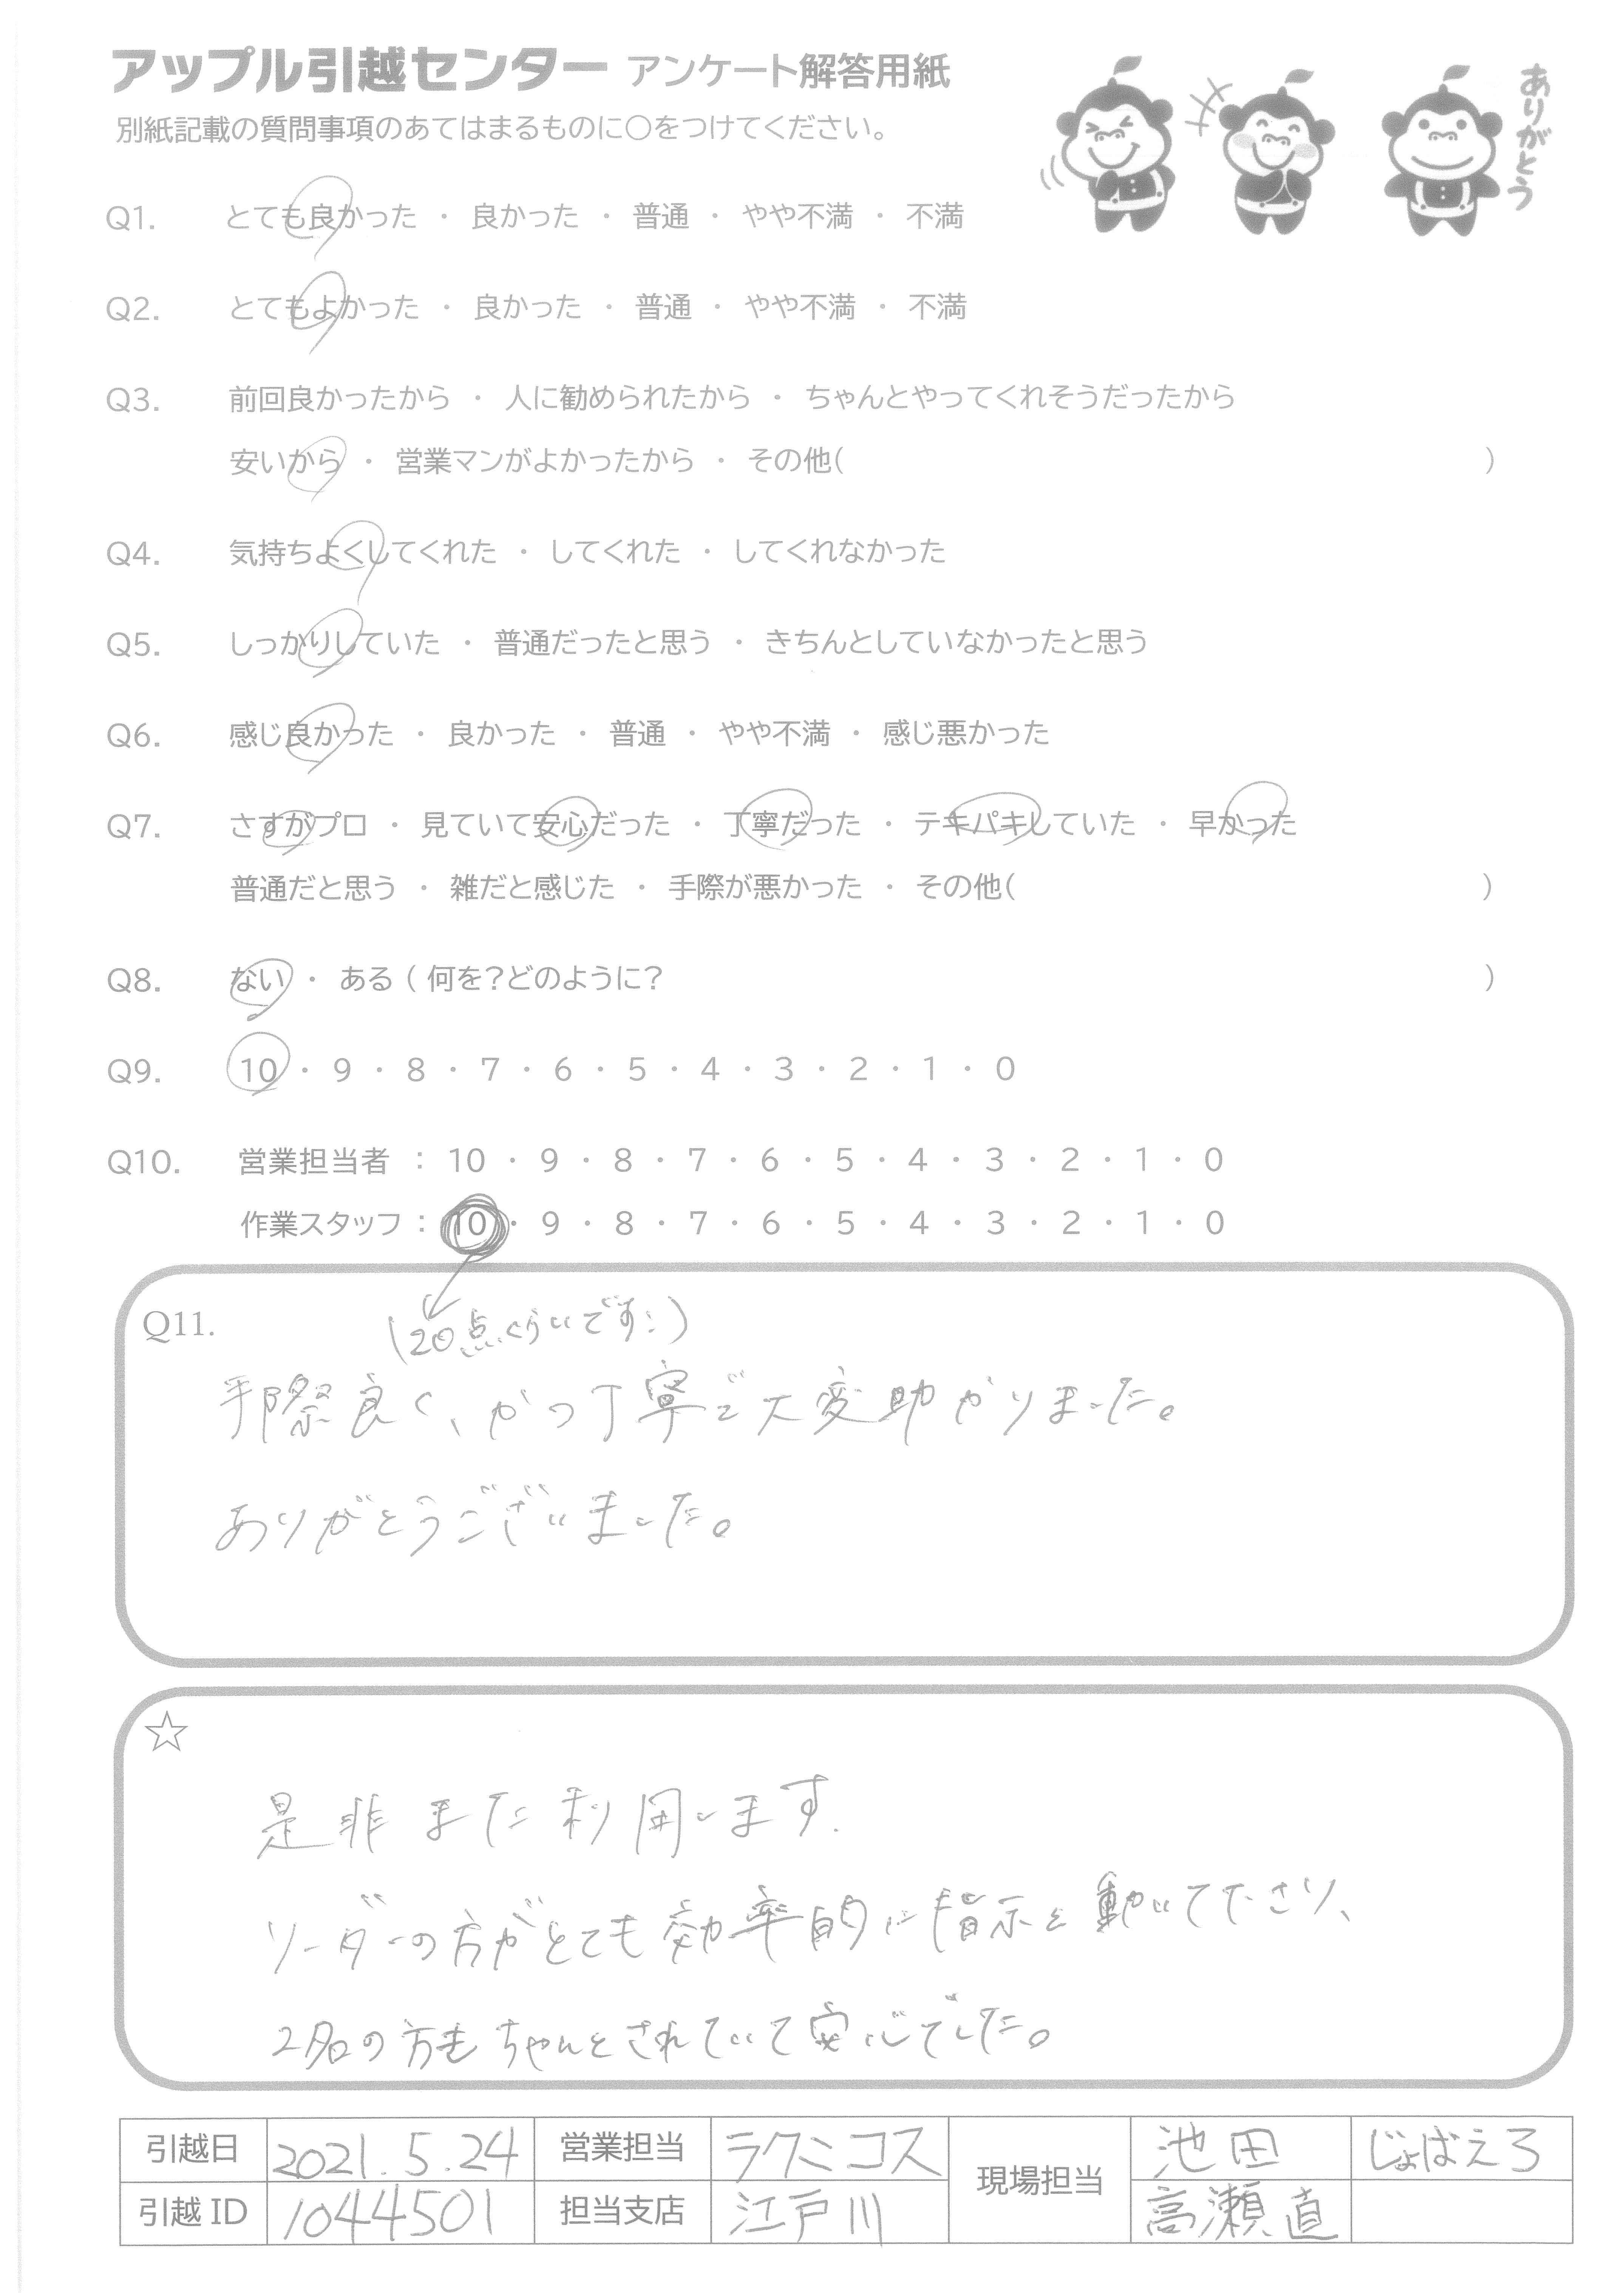 アップル引越センター アンケート解答用紙
ありがとう
別紙記載の質問事項のあてはまるものに○をつけてください。
Q1. とても良かった ・ 良かった ・ 普通 ・ やや不満 ・ 不満
Q2. とてもよかった ・ 良かった ・ 普通 ・ やや不満 ・ 不満
Q3. 前回良かったから ・ 人に勧められたから ・ ちゃんとやってくれそうだったから
安いから ・ 営業マンがよかったから ・ その他( )
Q4. 気持ちよくしてくれた ・ してくれた ・ してくれなかった
Q5. しっかりしていた ・ 普通だったと思う ・ きちんとしていなかったと思う
Q6. 感じ良かった ・ 良かった ・ 普通 ・ やや不満 ・ 感じ悪かった
Q7. さすがプロ ・ 見ていて安心だった ・ 丁寧だった ・ テキパキしていた ・ 早かった
普通だと思う ・ 雑だと感じた ・ 手際が悪かった ・ その他( )
Q8. ない ・ ある ( 何を?どのように? )
Q9. 10 ・ 9 ・ 8 ・ 7 ・ 6 ・ 5 ・ 4 ・ 3 ・ 2 ・ 1 ・ 0
Q10. 営業担当者 : 10 ・ 9 ・ 8 ・ 7 ・ 6 ・ 5 ・ 4 ・ 3 ・ 2 ・ 1 ・ 0
作業スタッフ : 10 ・ 9 ・ 8 ・ 7 ・ 6 ・ 5 ・ 4 ・ 3 ・ 2 ・ 1 ・ 0
Q11. (20点くらいです:)
手際良く、かつ丁寧で大変助かりました。
ありがとうございました。
☆
是非また利用します.
リーダーの方がとても効率的に指示を動いて下さり、
2名の方もちゃんとされていて安心でした。
引越日 2021.5.24 営業担当 ラクミコス 現場担当 池田 じょばえろ
引越ID 1044501 担当支店 江戸川 高瀬直